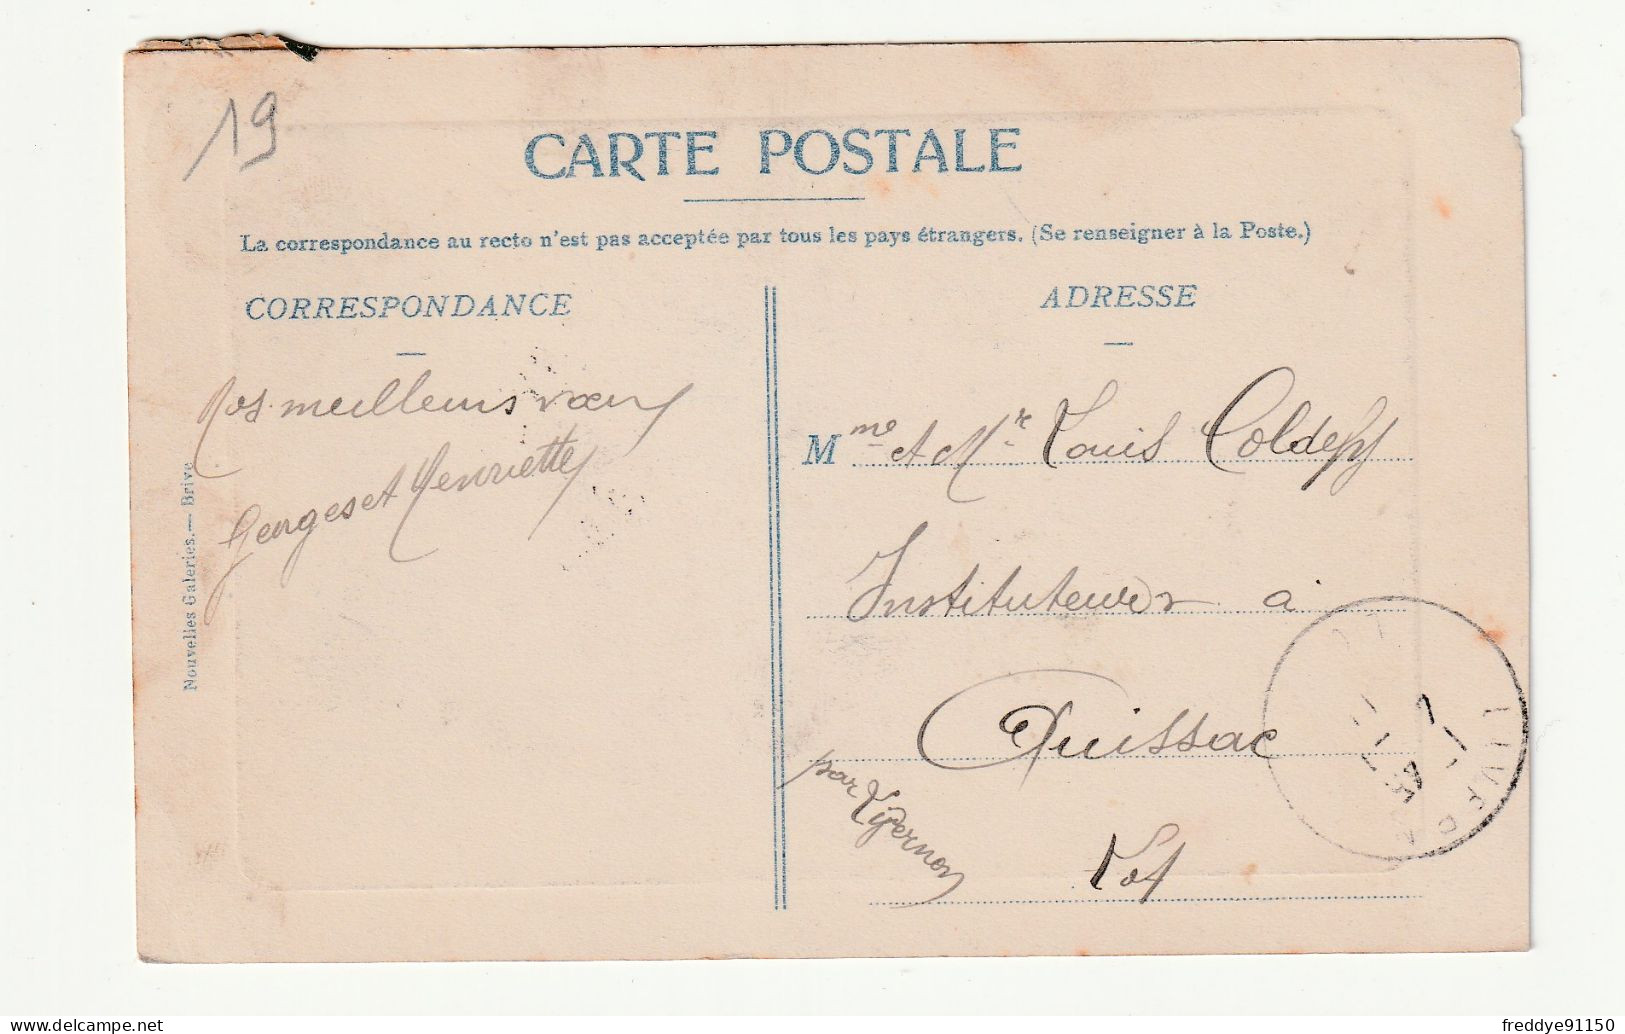 19
CARTE POSTALE
La correspondance au recto n'est pas acceptée par tous les pays étrangers. (Se renseigner à la Poste.)
CORRESPONDANCE
Nos meilleurs vœux
Georges et Henriette
Nouvelles Galeries. — Brive
ADRESSE
Mme et Mr Louis
Instituteur à
Quissac
par Livernon
Lot
LIVERNON
freddye91150